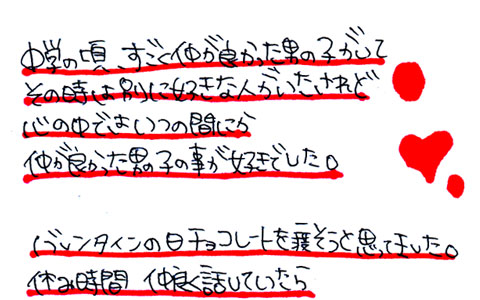 中学の頃、すごく仲が良かった男の子がいて
その時は別に好きな人がいたけれど
心の中ではいつの間にか
仲が良かった男の子の事が好きでした。
バレンタインの日チョコレートを渡そうと思ってました。
休み時間 仲良く話していたら